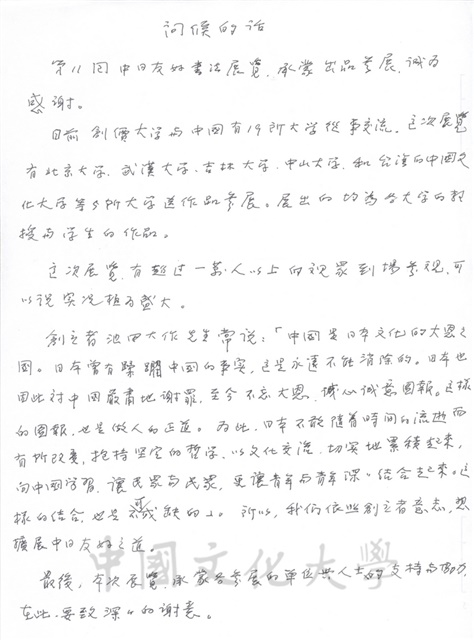 问候的话
第11回中日友好書法展覽,承蒙出品參展,诚为
感谢。
目前創價大学与中國有19所大学從事交流,这次展覽
有北京大学、武漢大学、吉林大学、中山大学、和台湾的中國文
化大学等5所大学送作品參展。展出的均為各大学的教
授与学生的作品。
这次展覽,有超过一萬人以上的观眾到場參观,可
以说实况極為盛大。
創立者池田大作先生常说:「中國是日本文化的大恩之
國。日本曾有蹂躪中國的事实,这是永遠不能消除的。日本也
因此对中國嚴肅地谢罪,至今不忘大恩,誠心诚意回報。这樣
的回報,也是做人的正道。为此,日本不敢隨着時间的流逝而
有所改变,抱持坚定的哲学,以文化交流,切实地累積起來,
向中國学習,讓民眾与民眾,更讓青年与青年深々结合起來。这
樣的结合,也是不可或缺的」。所以,我们依照創立者意志,想
擴展中日友好之道。
最後,本次展覽,承蒙各參展的单位與人士的支持与協力,
在此,要致深々的谢意。
中國文化大學